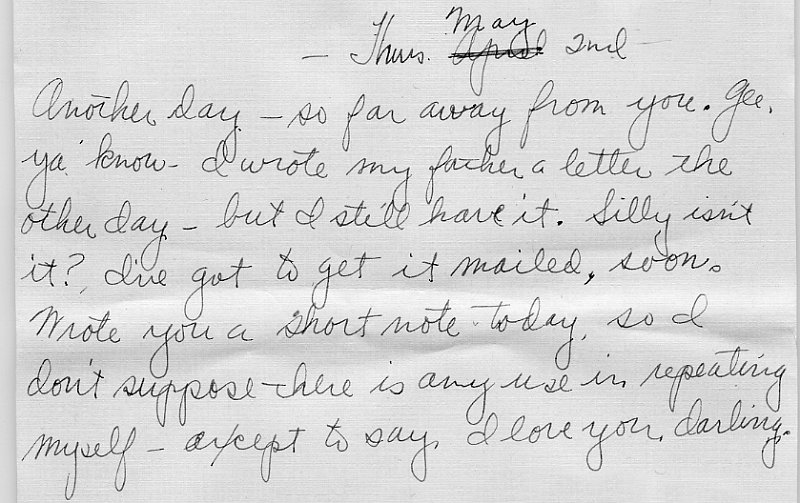 May
— Thurs. April 2nd —
Another day — so far away from you. Gee,
ya' know — I wrote my father a letter the
other day — but I still have it. Silly isn't
it? I've got to get it mailed, soon.
Wrote you a short note today, so I
don't suppose there is any use in repeating
myself — except to say, I love you, darling.